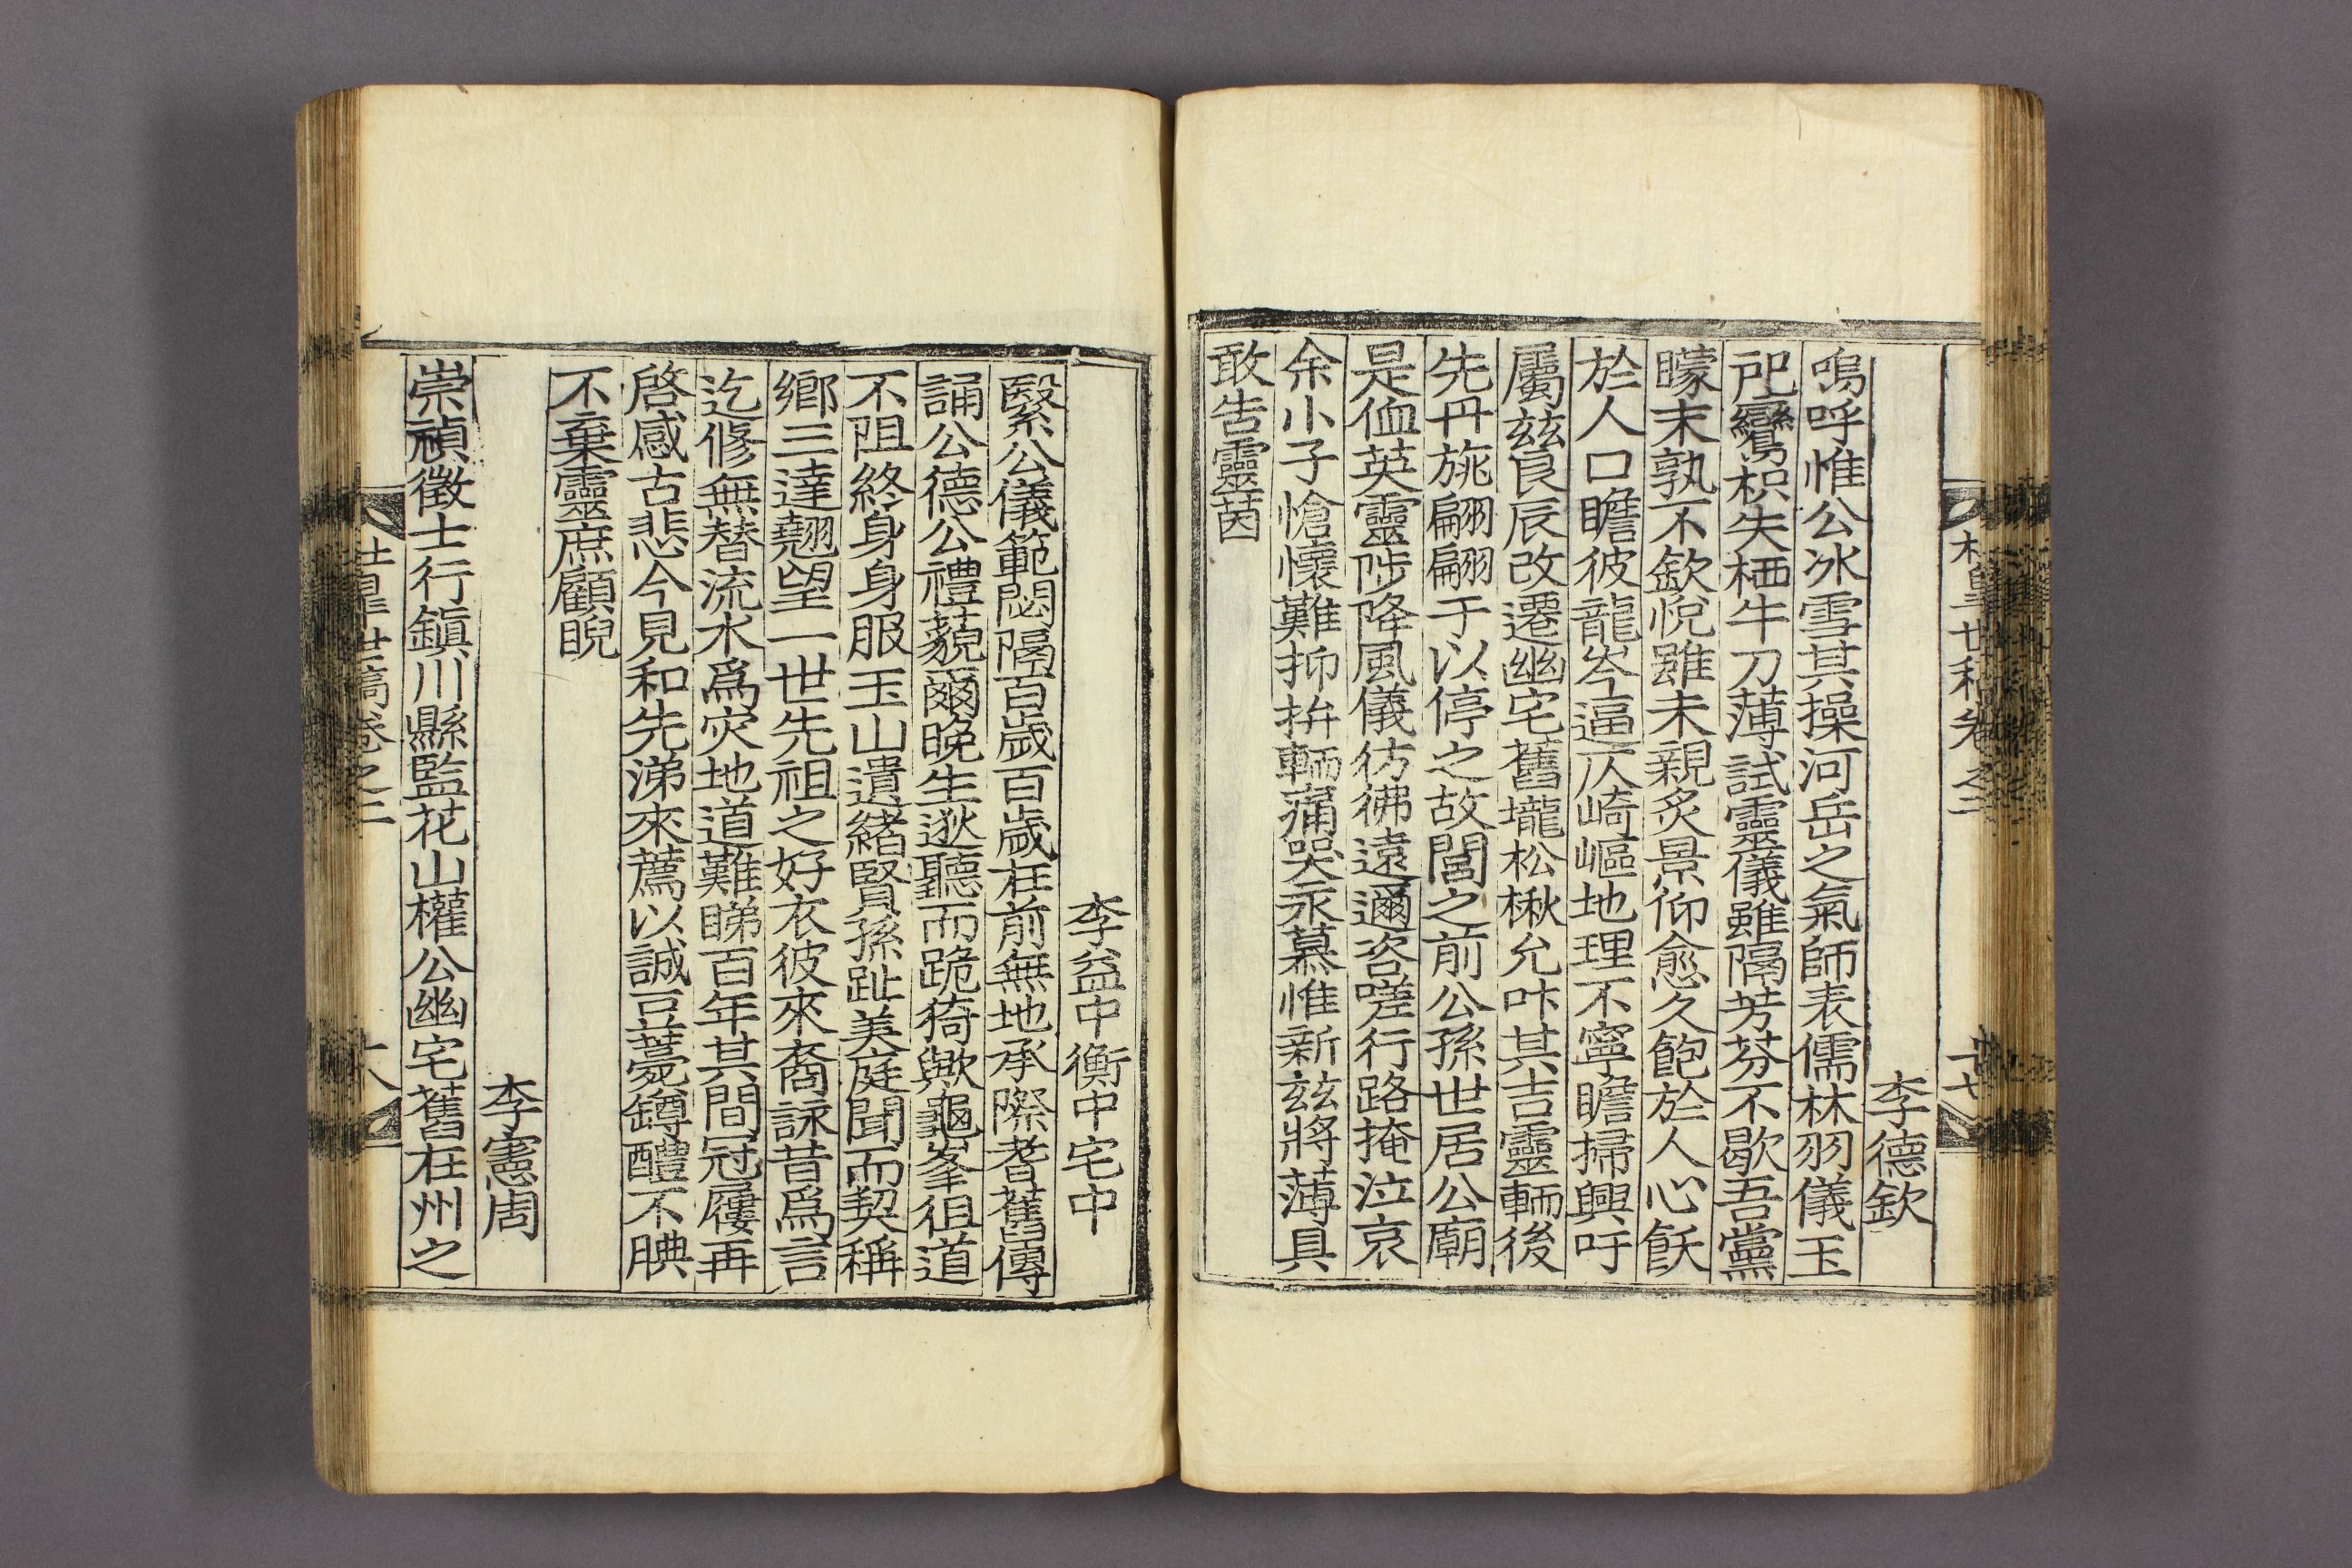 李德欽
嗚呼惟公冰雪其操河岳之氣師表儒林羽儀玉
戺鸞枳失栖牛刀薄試靈儀雖隔芳芬不歇吾黨
矇末孰不欽悅雖未親炙景仰愈久飽於人心飫
於人口瞻彼龍岑逼仄崎嶇地理不寧瞻掃興吁
屬玆良辰改遷幽宅舊壠松楸允叶其吉靈輀後
先丹旐翩翩于以停之故閭之前公孫世居公廟
是侐英靈陟降風儀彷彿遠邇咨嗟行路掩泣哀
余小子愴懷難抑拚輀痛哭永慕惟新玆將薄具
敢告靈茵
李益中衡中宅中
緊公儀範閟隔百歲百歲在前無地承際耆舊傳
誦公德公禮藐爾晩生逖聽而跪猗歟龜峯徂道
不阻終身身服玉山遺緖賢孫趾美庭聞而契稱
鄕三達翹望一世先祖之好衣彼來裔詠昔爲言
迄修無替流水爲灾地道難睇百年其間冠屨再
啓感古悲今見和先涕來薦以誠豆薧鐏醴不腆
不棄靈庶顧睨
李憲周
崇禎徵士行鎭川縣監花山權公幽宅舊在州之
世稿卷之二
十八